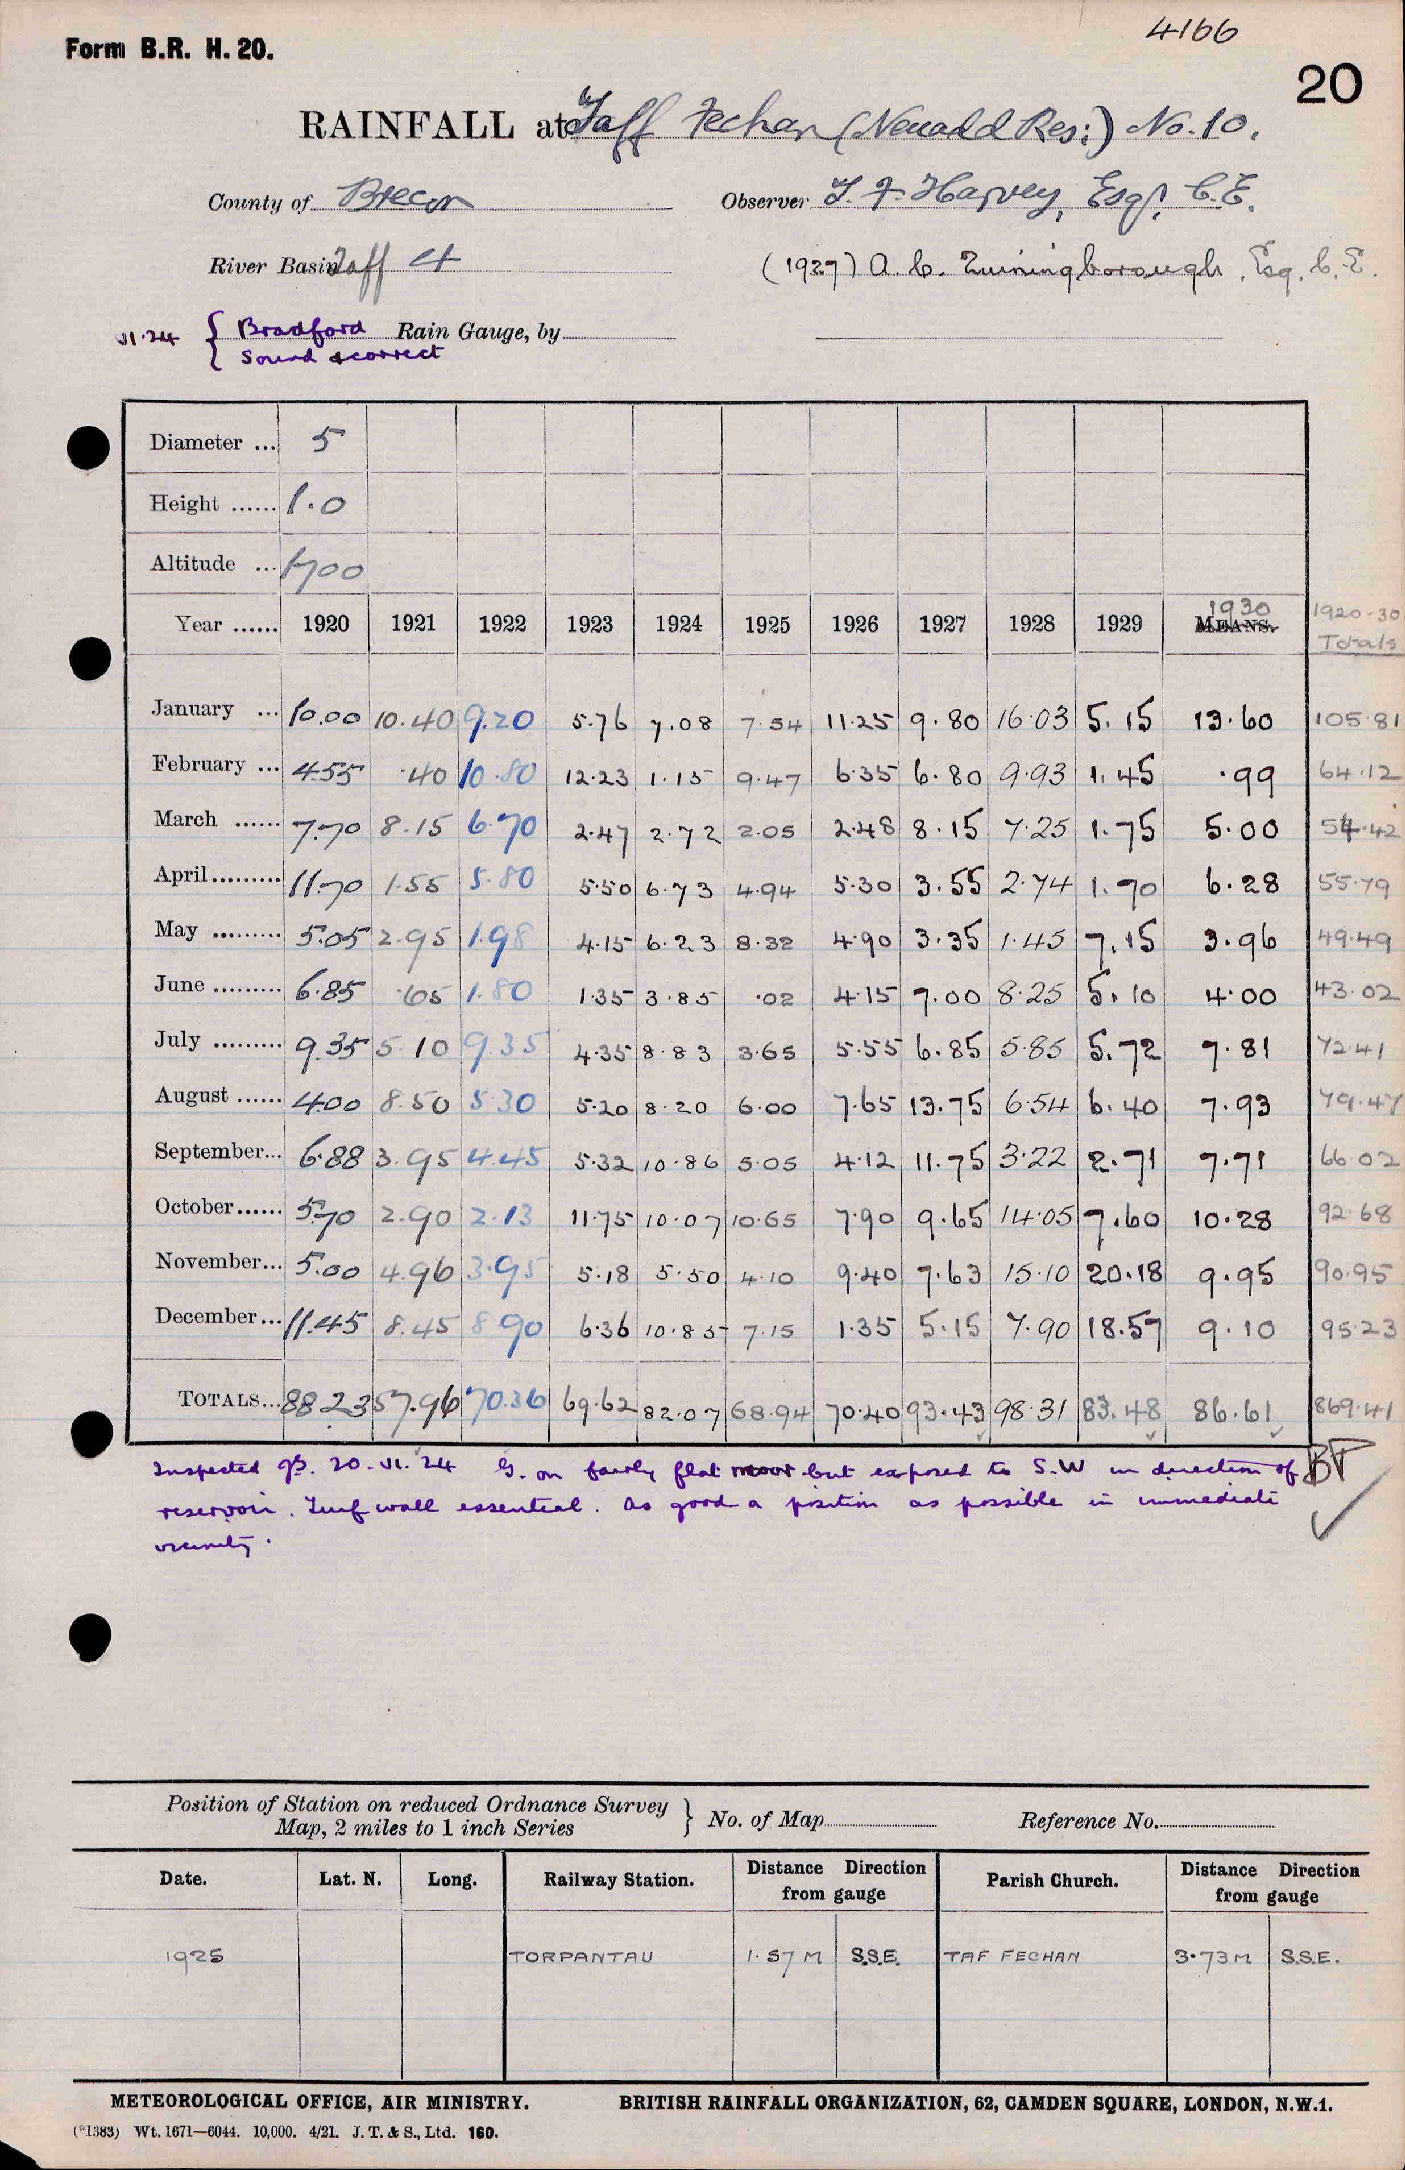 4166
Form B.R. H. 20.
20
RAINFALL at Taff Fechan (Neuadd Res:) No. 10.
County of Brecon Observer T. F. Harvey, Esq., C.E.
River Basin Taff 4 (1927) A. C. Esq. C. E.
VI.24 { Bradford Rain Gauge, by
Sound & correct
Diameter ... 5
Height ...... 1.0
Altitude ... 1700
Year ...... 1920 1921 1922 1923 1924 1925 1926 1927 1928 1929 MEANS. 1930 1920-30 Totals
January ... 10.00 10.40 9.20 5.76 7.08 7.54 11.25 9.80 16.03 5.15 13.60 105.81
February ... 4.55 .40 10.80 12.23 1.15 9.47 6.35 6.80 9.93 1.45 .99 64.12
March ...... 7.70 8.15 6.70 2.47 2.72 2.05 2.48 8.15 7.25 1.75 5.00 54.42
April......... 11.70 1.55 5.80 5.50 6.73 4.94 5.30 3.55 2.74 1.70 6.28 55.79
May ......... 5.05 2.95 1.98 4.15 6.23 8.32 4.90 3.35 1.45 7.15 3.96 49.49
June ......... 6.85 .65 1.80 1.35 3.85 .02 4.15 7.00 8.25 5.10 4.00 43.02
July ......... 9.35 5.10 9.35 4.35 8.83 3.65 5.55 6.85 5.85 5.72 7.81 72.41
August ...... 4.00 8.50 5.30 5.20 8.20 6.00 7.65 13.75 6.54 6.40 7.93 79.47
September... 6.88 3.95 4.45 5.32 10.86 5.05 4.12 11.75 3.22 2.71 7.71 66.02
October...... 5.70 2.90 2.13 11.75 10.07 10.65 7.90 9.65 14.05 7.60 10.28 92.68
November... 5.00 4.96 3.95 5.18 5.50 4.10 9.40 7.63 15.10 20.18 9.95 90.95
December... 11.45 8.45 8.90 6.36 10.85 7.15 1.35 5.15 7.90 18.57 9.10 95.23
TOTALS... 88.23 57.96 70.36 69.62 82.07 68.94 70.40 93.43 98.31 83.48 86.61 869.41
Inspected 20.VI.24 G. on fairly flat moor but exposed to S.W in direction of BF
reservoir. Turf wall essential. As good a position as possible in immediate
vicinity.
Position of Station on reduced Ordnance Survey } No. of Map Reference No.
Map, 2 miles to 1 inch Series
Date. Lat. N. Long. Railway Station. Distance Direction from gauge Parish Church. Distance Direction from gauge
1925 TORPANTAU 1.57 M S.S.E. TAF FECHAN 3.73 M S.S.E.
METEOROLOGICAL OFFICE, AIR MINISTRY. BRITISH RAINFALL ORGANIZATION, 62, CAMDEN SQUARE, LONDON, N.W.1.
(*1383) Wt. 1671—6044. 10,000. 4/21. J. T. & S., Ltd. 160.